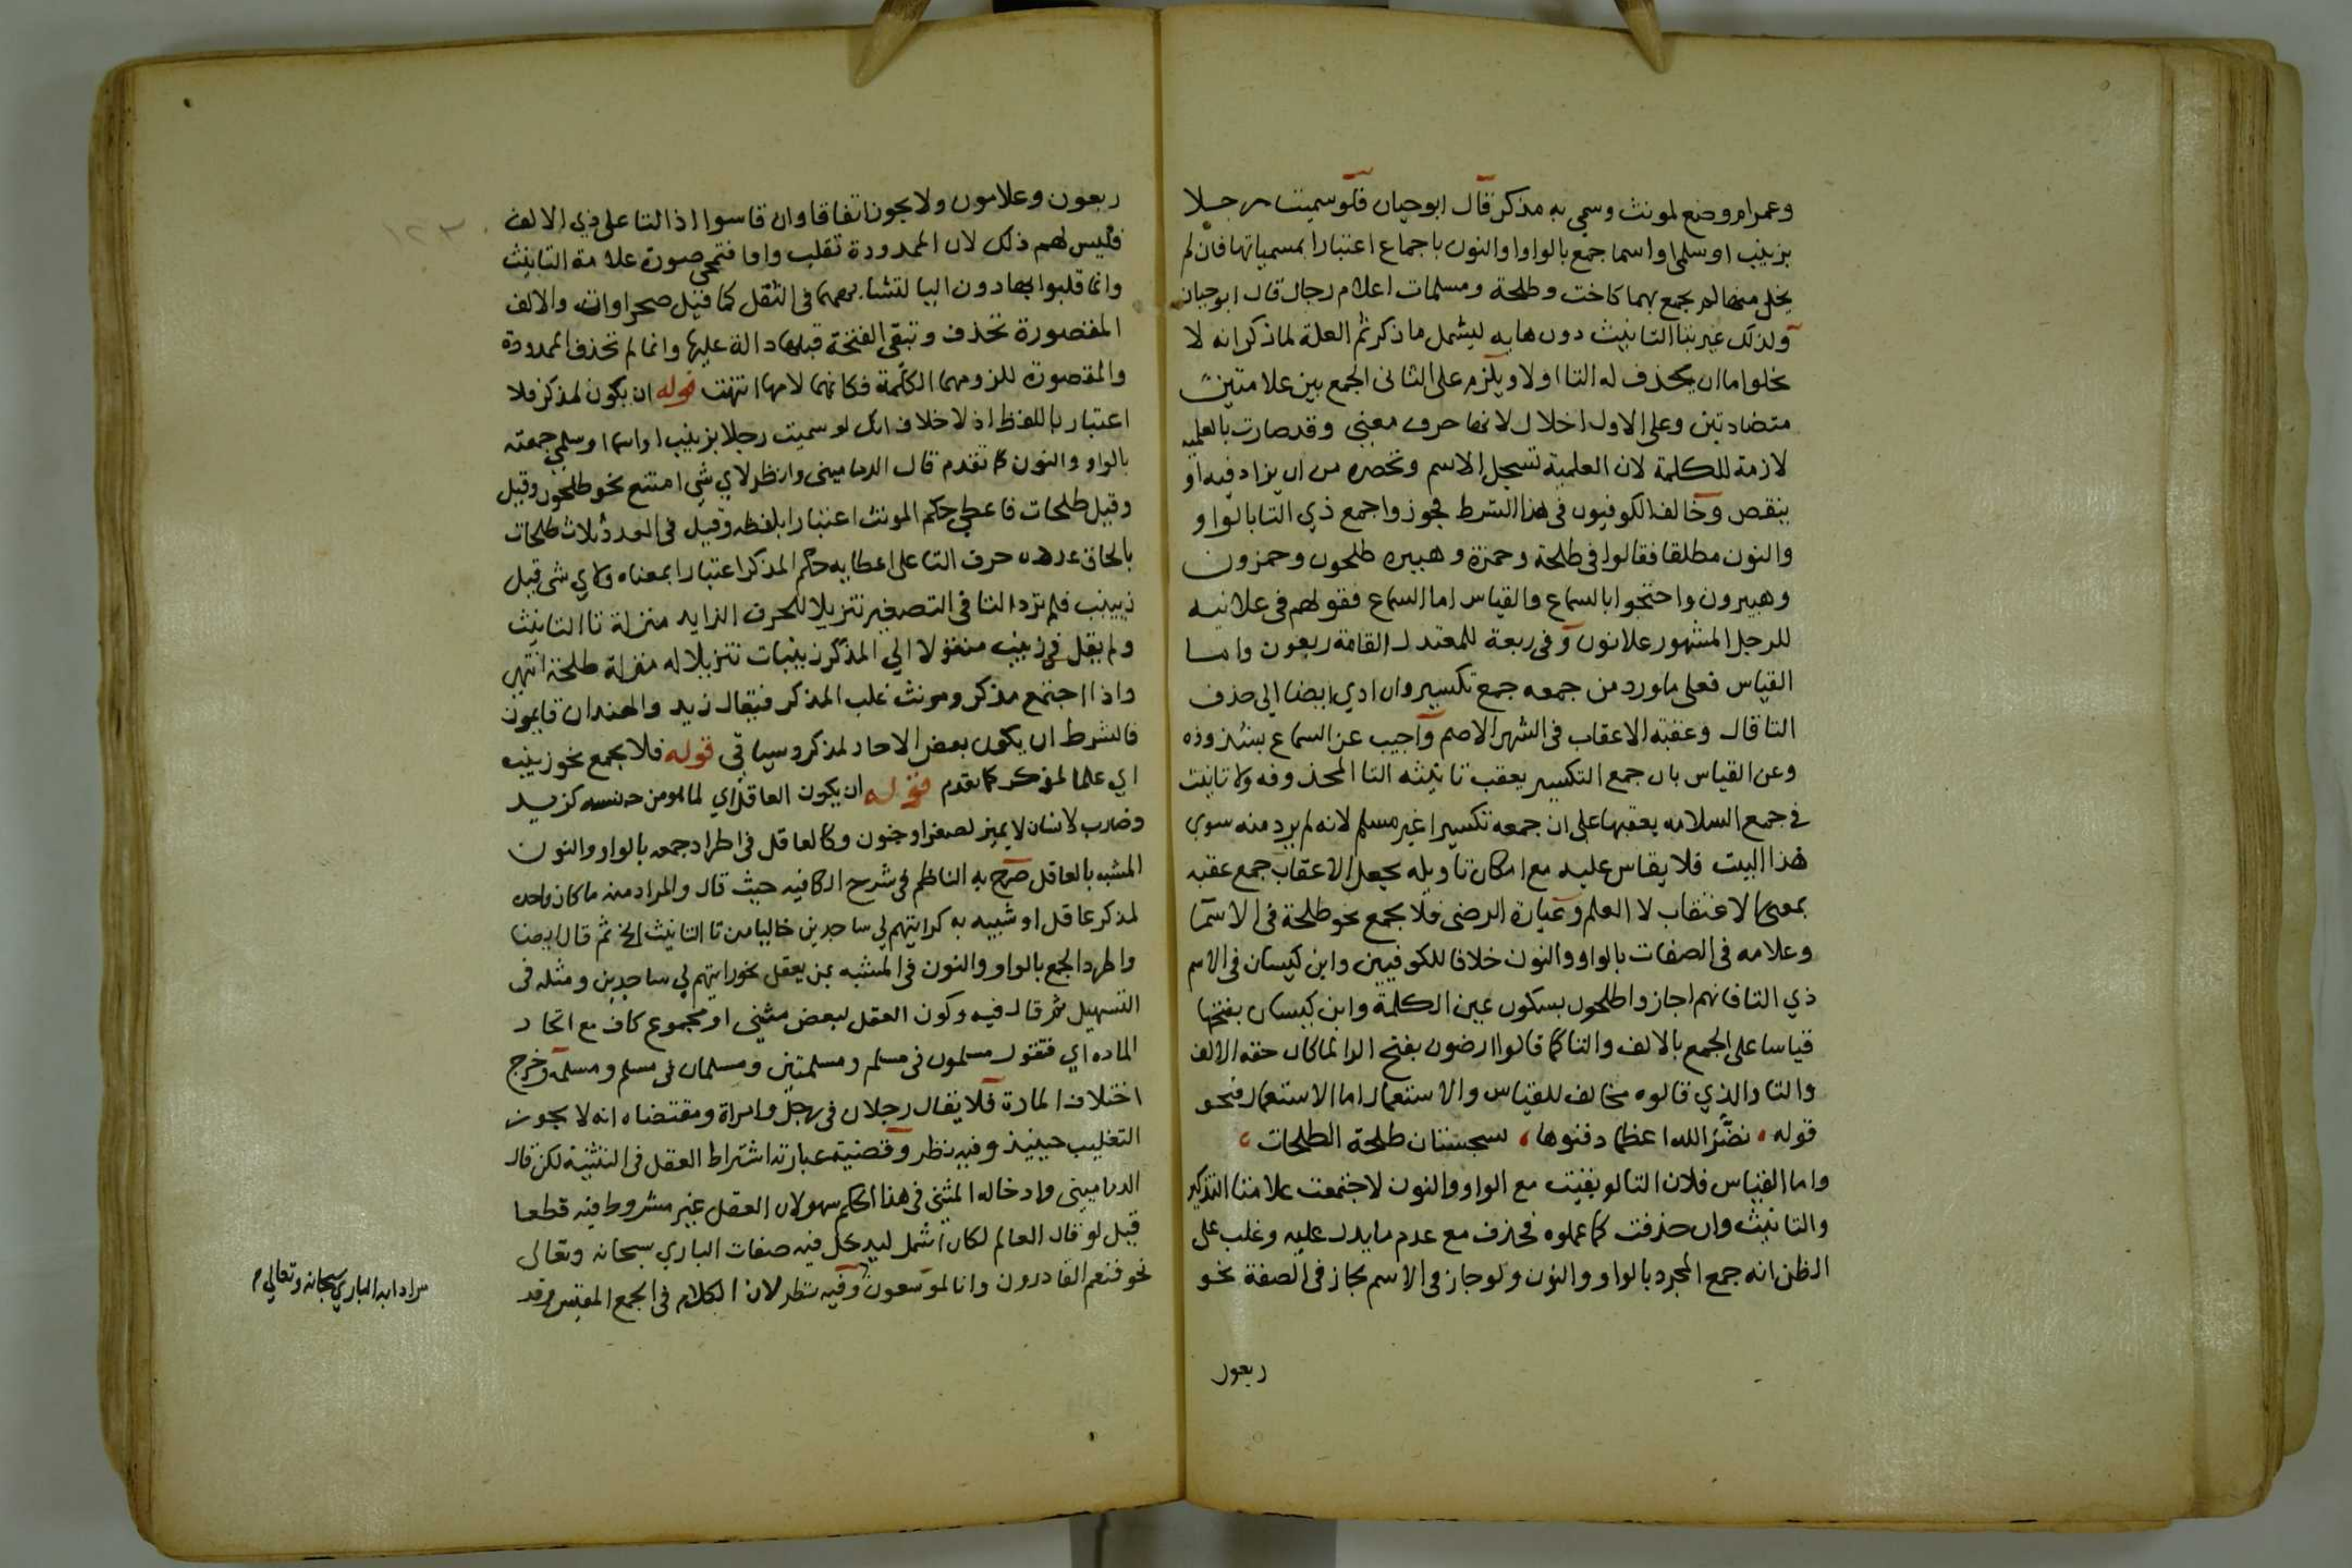 وعمرام وضع لمونث وسمي به مذكر قال ابوحيان فلو سميت رجلا
بزينب او سلمى او اسما جمع بالواو والنون باجماع اعتبارا بمسمياتها فان لم
يخل منها لم يجمع بهما كاخت وطلحة ومسلمات اعلام رجال قال ابوحيان
ولذلك عبر بتا التانيث دون هايه ليشمل ما ذكر ثم العلة لما ذكر انه لا
يخلو اما ان يحذف له التا او لا ويلزم على الثانى الجمع بين علامتين
متضادتين وعلى الاول اخلال لانها حرف معنى وقد صارت بالعلمية
لازمة للكلمة لان العلمية تسجل الاسم وتحصره من ان يزاد فيه او
ينقص وخالف الكوفيون فى هذا الشرط فجوزوا جمع ذي التا بالواو
والنون مطلقا فقالوا فى طلحة وحمزة وهبيره طلحون وحمزون
وهبيرون واحتجوا بالسماع والقياس اما السماع فقولهم فى علانيه
للرجل المشهور علانون وفى ربعة للمعتدل القامة ربعون واما
القياس فعلى ما ورد من جمعه جمع تكسير وان ادي ايضا الي حذف
التا قال وعقبة الاعقاب فى الشهر الاصم واجيب عن السماع بشذوذه
وعن القياس بان جمع التكسير يعقب تانيثه التا المحذوفه ولا تانيث
في جمع السلامه يعقبها على ان جمعه تكسيرا غير مسلم لانه لم يرد منه سوي
هذا البيت فلا يقاس عليه مع امكان تاويله بجعل الاعقاب جمع عقبه
بمعنى الاعتقاب لا العلم وعبارة الرضى فلا يجمع نحو طلحة فى الاسما
وعلامه فى الصفات بالواو والنون خلافا للكوفيين وابن كيسان فى الاسم
ذي التا فانهم اجازوا طلحون بسكون عين الكلمة وابن كيسان بفتحها
قياسا على الجمع بالالف والتا كما قالوا ارضون بفتح الرا لما كان حقه الالف
والتا والذي قالوه مخالف للقياس والاستعمال اما الاستعمال فنحو
قوله نضّر الله اعظما دفنوها بسجستان طلحة الطلحات
واما القياس فلان التا لو بقيت مع الواو والنون لاجتمعت علامتا التذكير
والتانيث وان حذفت كما عملوه فحذف مع عدم ما يدل عليه وغلب على
الظن انه جمع المجرد بالواو والنون ولو جاز فى الاسم لجاز فى الصفة نحو
ربعون
١٢٣
ربعون وعلامون ولا يجوز اتفاقا وان قاسوا اذا التا على ذي الالف
فليس لهم ذلك لان الممدودة تقلب واوا فتمحى صورة علامة التانيث
وانما قلبوا واو دون اليا لتشابههما فى الثقل كما قيل صحراوات والالف
المقصورة تحذف وتبقى الفتحة قبلها دالة عليها وانما لم تحذف الممدودة
والمقصورة للزومهما الكلمة فكانهما لامها انتهت قوله ان يكون لمذكر فلا
اعتبار باللفظ اذ لا خلاف انك لو سميت رجلا بزينب او اسما او سلمى جمعته
بالواو والنون كما تقدم قال الدماميني وانظر لاي شي امتنع نحو طلحون وقيل
وقيل طلحات فاعطي حكم المونث اعتبارا بلفظه وقيل فى العدد ثلاث طلحات
بالحاق عدده حرف التا على اعطايه حكم المذكر اعتبارا بمعناه ولاي شى قيل
زيينب فلم ترد التا فى التصغير تنزيلا للحرف الزايد منزلة تا التانيث
ولم يقل فى زينب منقولا الي المذكر زينبات تنزيلا له منزلة طلحة انتهى
واذا اجتمع مذكر ومونث غلب المذكر فيقال زيد والهندان قايمون
فالشرط ان يكون بعض الاحاد لمذكر وسياتى قوله فلا يجمع نحو زينب
اي علما لمونث كما تقدم قوله ان يكون العاقل اي لما هو من جنسه كزيد
وضارب لانسان لا يميز لصغر او جنون وكالعاقل فى اطراد جمعه بالواو والنون
المشبه بالعاقل صرح به الناظم فى شرح الكافيه حيث قال والمراد منه ما كان واحده
لمذكر عاقل او شبيه به كرايتهم لي ساجدين خاليا من تا التانيث الخ ثم قال ايضا
واطرد الجمع بالواو والنون فى المشبه بمن يعقل نحو رايتهم لي ساجدين ومثله فى
التسهيل ثم قال فيه وكون العقل لبعض مثنى او مجموع كاف مع اتحاد
الماده اي فتقول مسلمون فى مسلم ومسلمتين ومسلمان فى مسلم ومسلمة وخرج
اختلاف المادة فلا يقال رجلان فى رجل وامراة ومقتضاه انه لا يجوز
التغليب حينيذ وفيه نظر وقضية عبارته اشتراط العقل فى التثنية لكن قال
الدماميني وادخاله المثنى فى هذا الحكم سهو لان العقل غير مشروط فيه قطعا
قيل لو قال العالم لكان اشمل ليدخل فيه صفات الباري سبحانه وتعالى
نحو فنعم القادرون وانا لموسعون وفيه نظر لان الكلام فى الجمع المقيس وقد
الباري سبحانه وتعالي